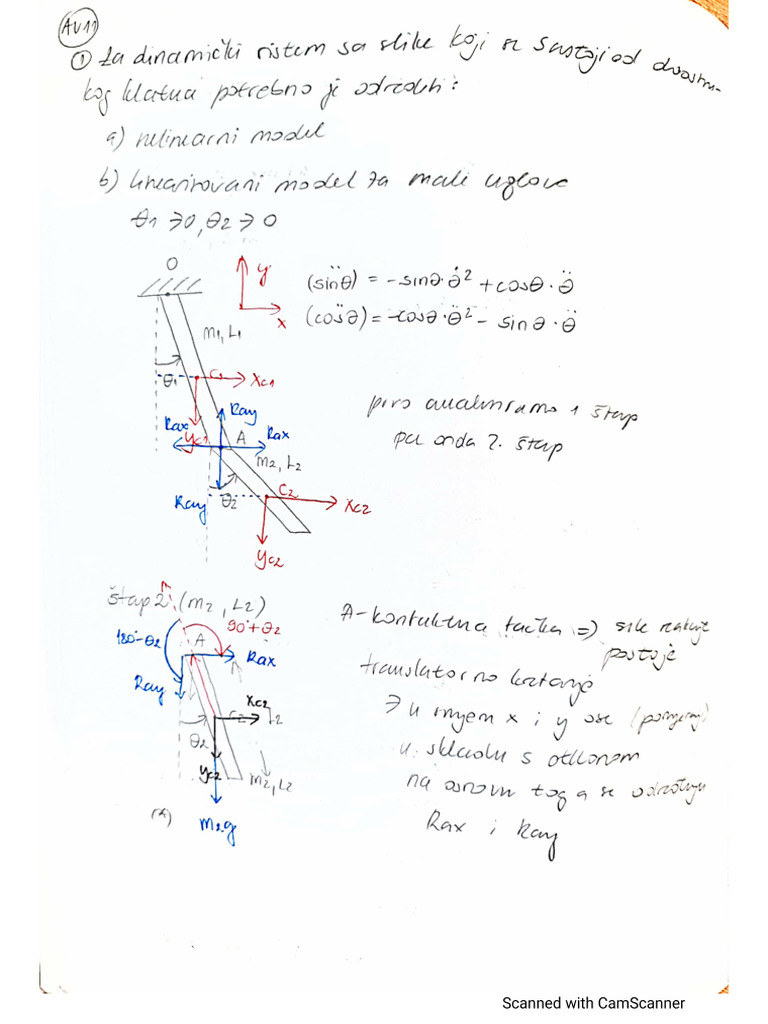 AV11
① Za dinamički sistem sa slike koji se sastoji od dvostru-
kog klatna potrebno je odrediti:
a) nelinearni model
b) linearizovani model za male uglove
θ1 ≥0, θ2 ≥ 0
O
y
x
(sinθ)̈ = -sinθ·θ̇² + cosθ·θ̈
(cosθ)̈ = -cosθ·θ̈² - sinθ·θ̈
m1, L1
θ1
C1
Xc1
Yc1
Ray
Rax
A
Rax
m2, L2
Ray
θ2
C2
Xc2
Yc2
prvo analiziramo 1 štap
pa onda 2. štap
štap 2: (m2, L2)
180°-θ2
A
90°+θ2
Rax
Ray
Xc2
C2
θ2
Yc2
m2, L2
m2g
A-kontaktna tačka => sile reakcije
postoje
translatorno kretanje
u smjeru x i y ose
u skladu s otklonom
na osnovu toga se
Rax i Ray
Scanned with CamScanner